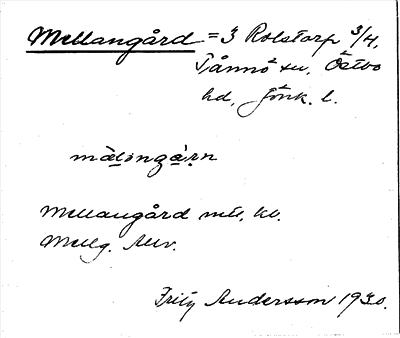 Mellangård = 3 Rolstorp 3/4,
Tånnö sn, Östbo
hd, Jönk. l.
mälingårn
Mellangård mtl, kv.
Mellg.
Fritz Andersson 1930.